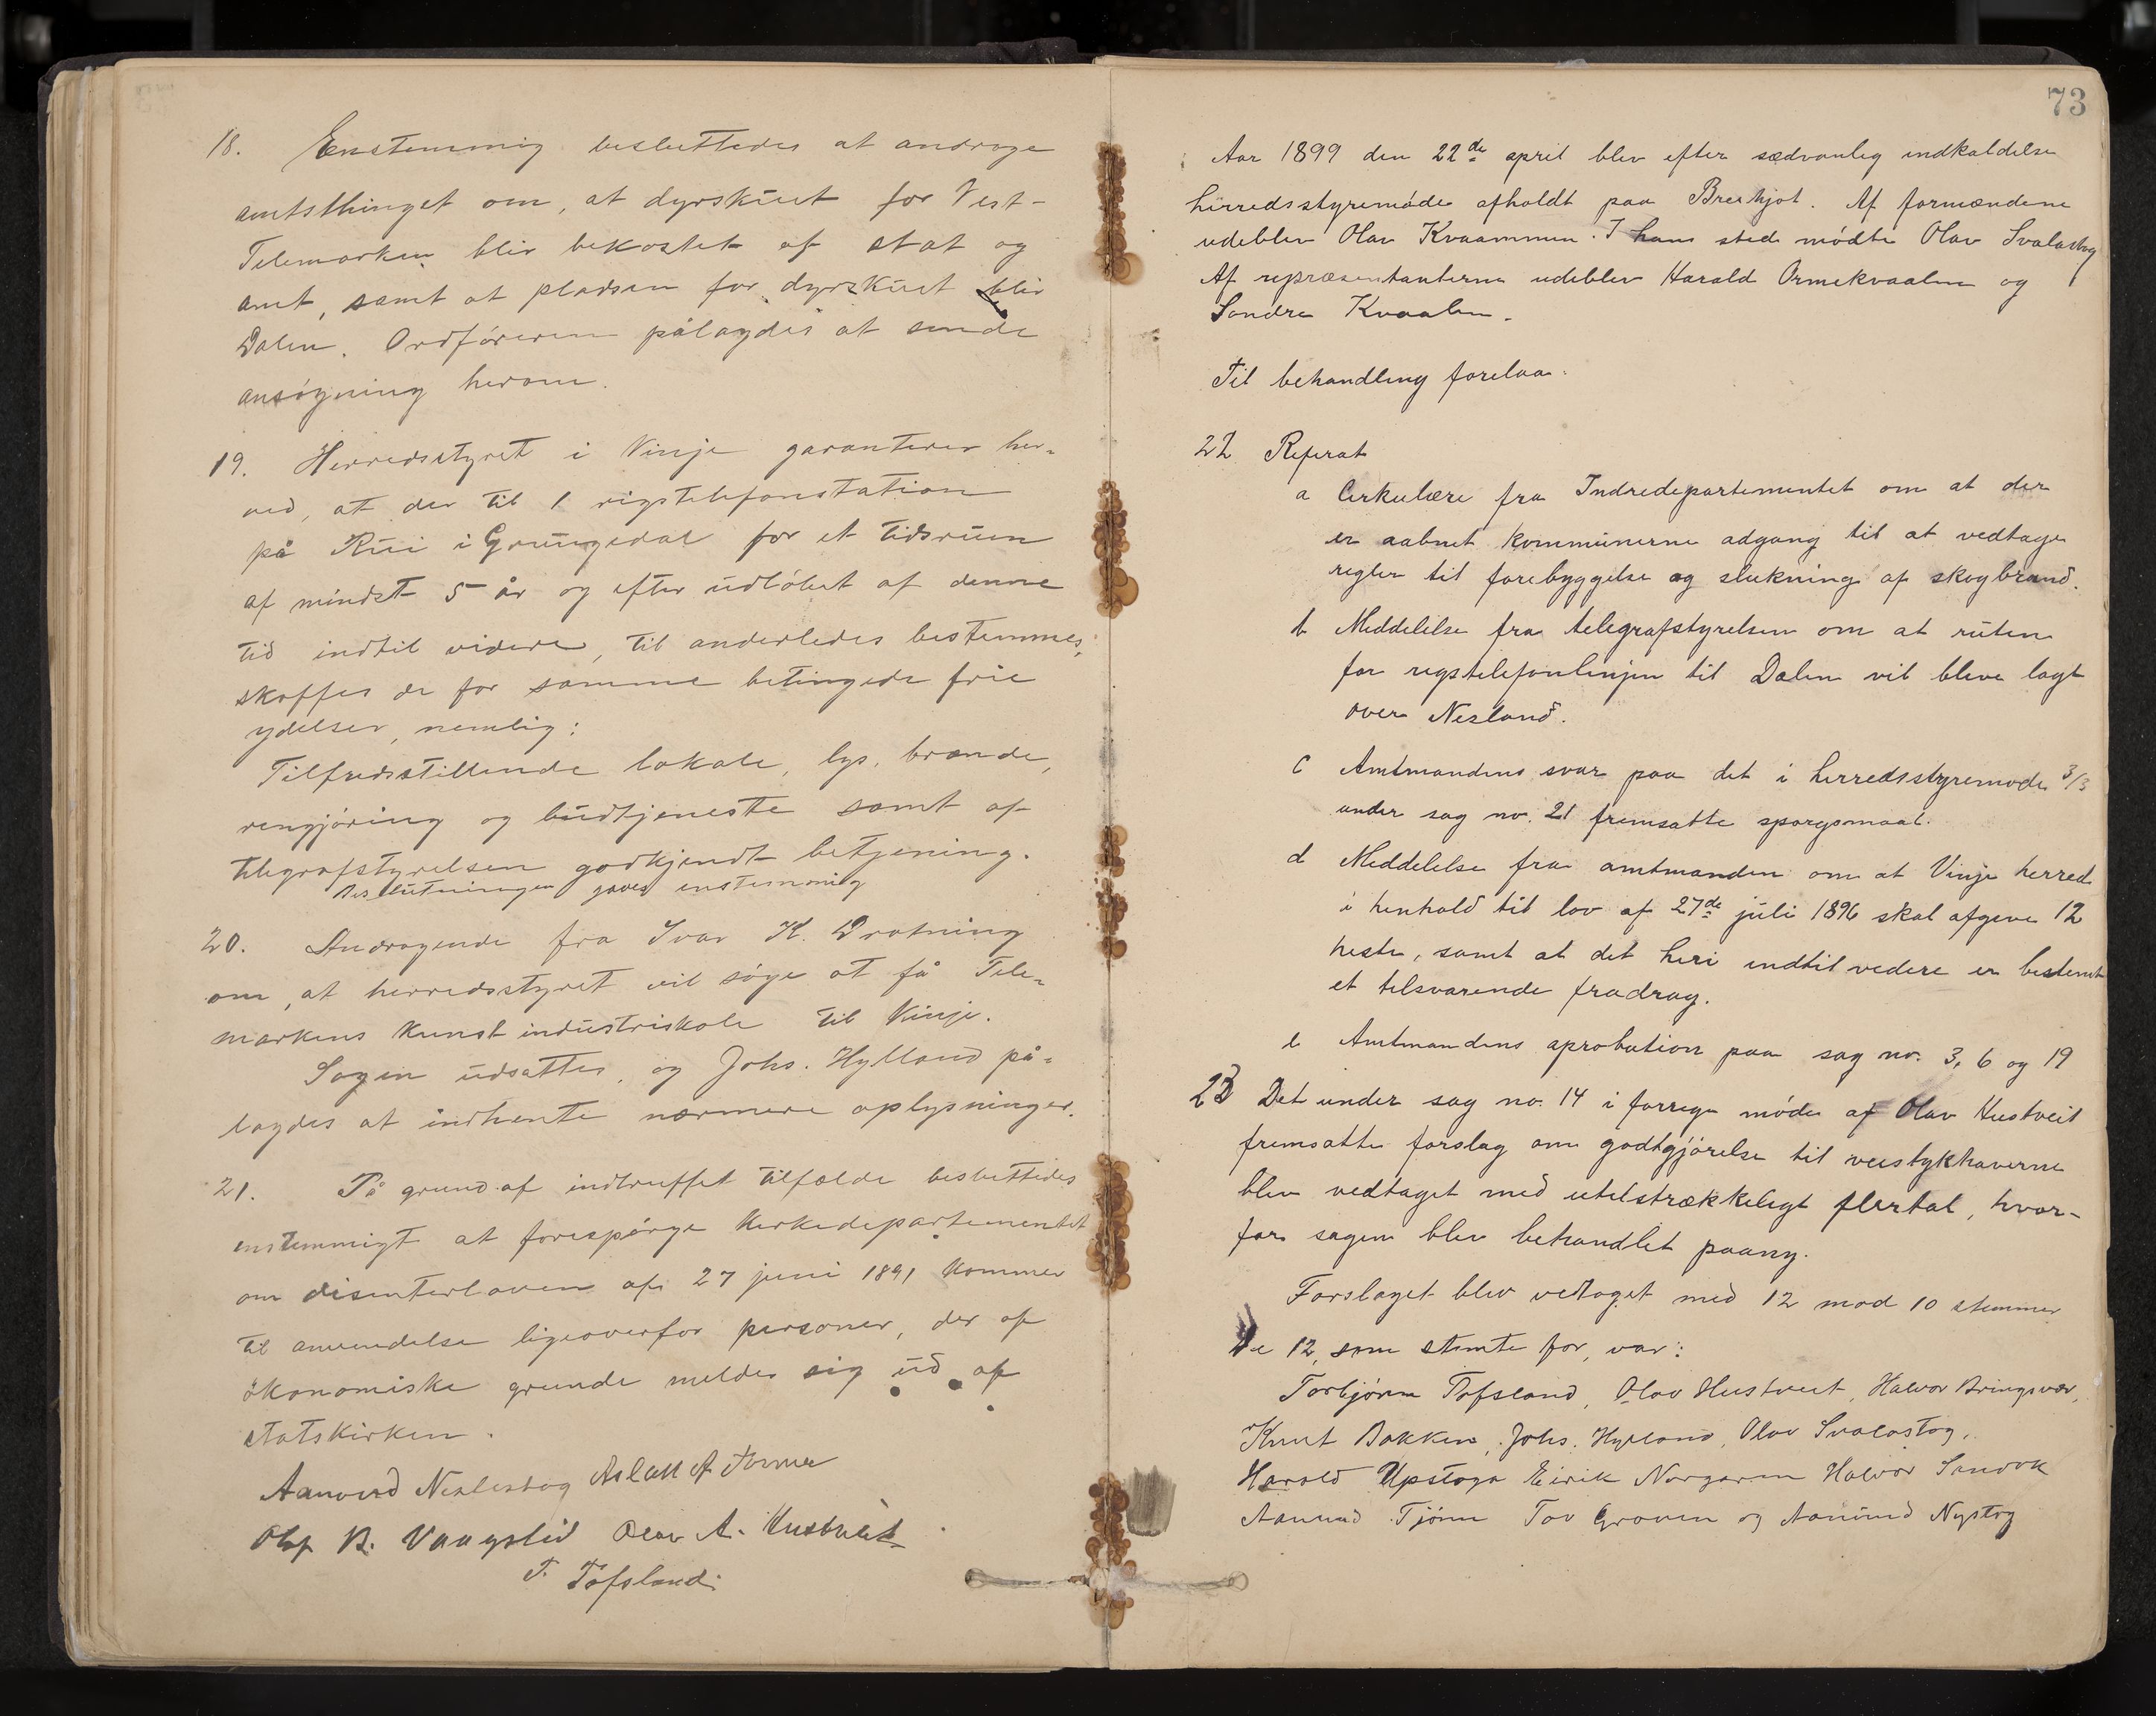 18. Enstemmig besluttedes at andrage
amtsthinget om, at dyrskuet for Vest-
Telemarken blir bekostet af stat og
amt, samt at pladsen for dyrskuet blir
Dalen. Ordføreren pålagdes at sende
ansøgning herom.
19. Herredsstyret i Vinje garanterer her-
ved, at der til 1 rigstelefonstation
på Rui i Grungedal for et tidsrum
af mindst 5 år og efter udløbet af denne
tid indtil videre, til anderledes bestemmes,
skaffes de for samme betingede frie
ydelser, nemlig:
Tilfredsstillende lokale, lys, brænde,
rengjøring og budtjeneste samt af
telegrafstyrelsen godkjendt betjening.
Beslutningen gaves enstemmig
20. Andragende fra Ivar K. Dratning
om, at herredsstyret vil søge at få Tele-
markens kunstindustriskole til Vinje.
Sagen udsattes, og Johs. Hylland på-
lagdes at indhente nærmere oplysninger.
21. På grund af indtruffet tilfælde besluttedes
enstemmigt at forespørge Kirkedepartementet
om disenterloven af 27 juni 1891 kommer
til anvendelse ligeoverfor personer, der af
økonomiske grunde melder sig ud af
statskirken.
Aanund Neslestog Aslak A
Olaf B. Vaagslid Olav A. Hustveit
T. Tofsland
73
Aar 1899 den 22de april blev efter sædvanlig indkaldelse
herredsstyremøde afholdt paa Breihjot. Af formændene
udeblev Olav Kvaammen. I hans sted mødte Olav Svalastog
Af repræsentanterne udeblev Harald Ormekvaalen og
Sondre Kvaalen.
Til behandling forelaa.
22 Referat
a Cirkulære fra Indredepartementet om at der
er aabnet kommunerne adgang til at vedtage
regler til forebyggelse og slukning af skogbrand.
b Meddelelse fra telegrafstyrelsen om at ruten
for rigstelefonlinjen til Dalen vil blive lagt
over Nesland.
c Amtmandens svar paa det i herredsstyremøde 3/3
under sag no. 21 fremsatte spørgsmaal.
d Meddelelse fra amtmanden om at Vinje herred
i henhold til lov af 27de juli 1896 skal afgive 12
heste, samt at det heri indtil videre er bestemt
et tilsvarende fradrag.
e Amtmandens aprobation paa sag no. 3, 6 og 19
23 Det under sag no. 14 i forrige møde af Olav Hustveit
fremsatte forslag om godtgjørelse til veistykhaverne
blev vedtaget med utilstrækkeligt flertal, hvor-
for sagen blev behandlet paany.
Forslaget blev vedtaget med 12 mod 10 stemmer
De 12, som stemte for, var:
Torbjørn Tofsland, Olav Hustveit, Halvor Bringsvær,
Knut Bakken, Johs. Hylland, Olav Svalastog,
Harald Upstoga Eirik Norgaren Halvor Sandok
Aanund Tjønn Tov Groven og Aanund Nystog